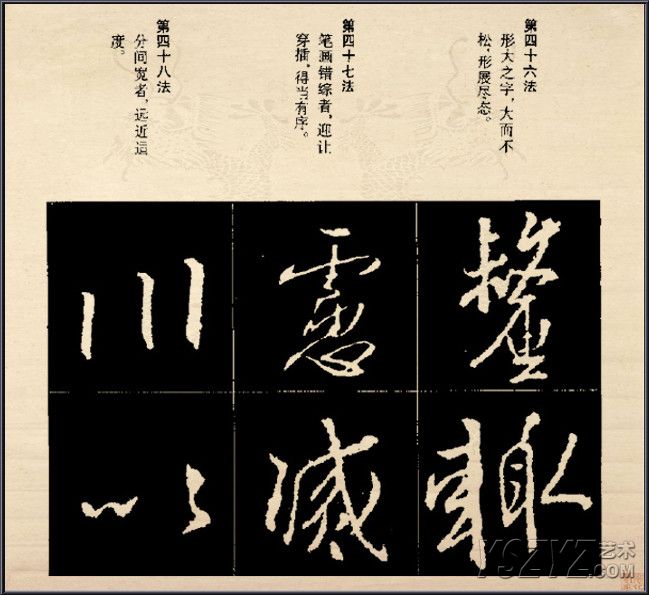 第四十六法
形大之字，大而不
松，形展尽态。
第四十七法
笔画错综者，迎让
穿插，得当有序。
第四十八法
分间宽者，远近适
度。
川
以
YSZYZ艺术
.COM